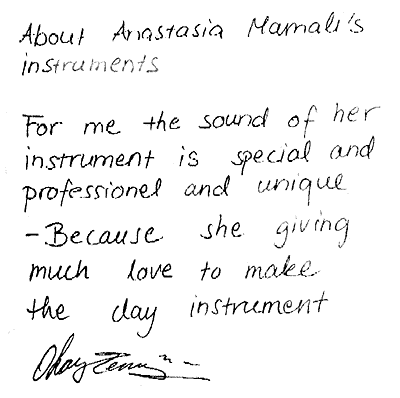 About Anastasia Mamali's
instruments
For me the sound of her
instrument is special and
professionel and unique
-Because she giving
much love to make
the clay instrument